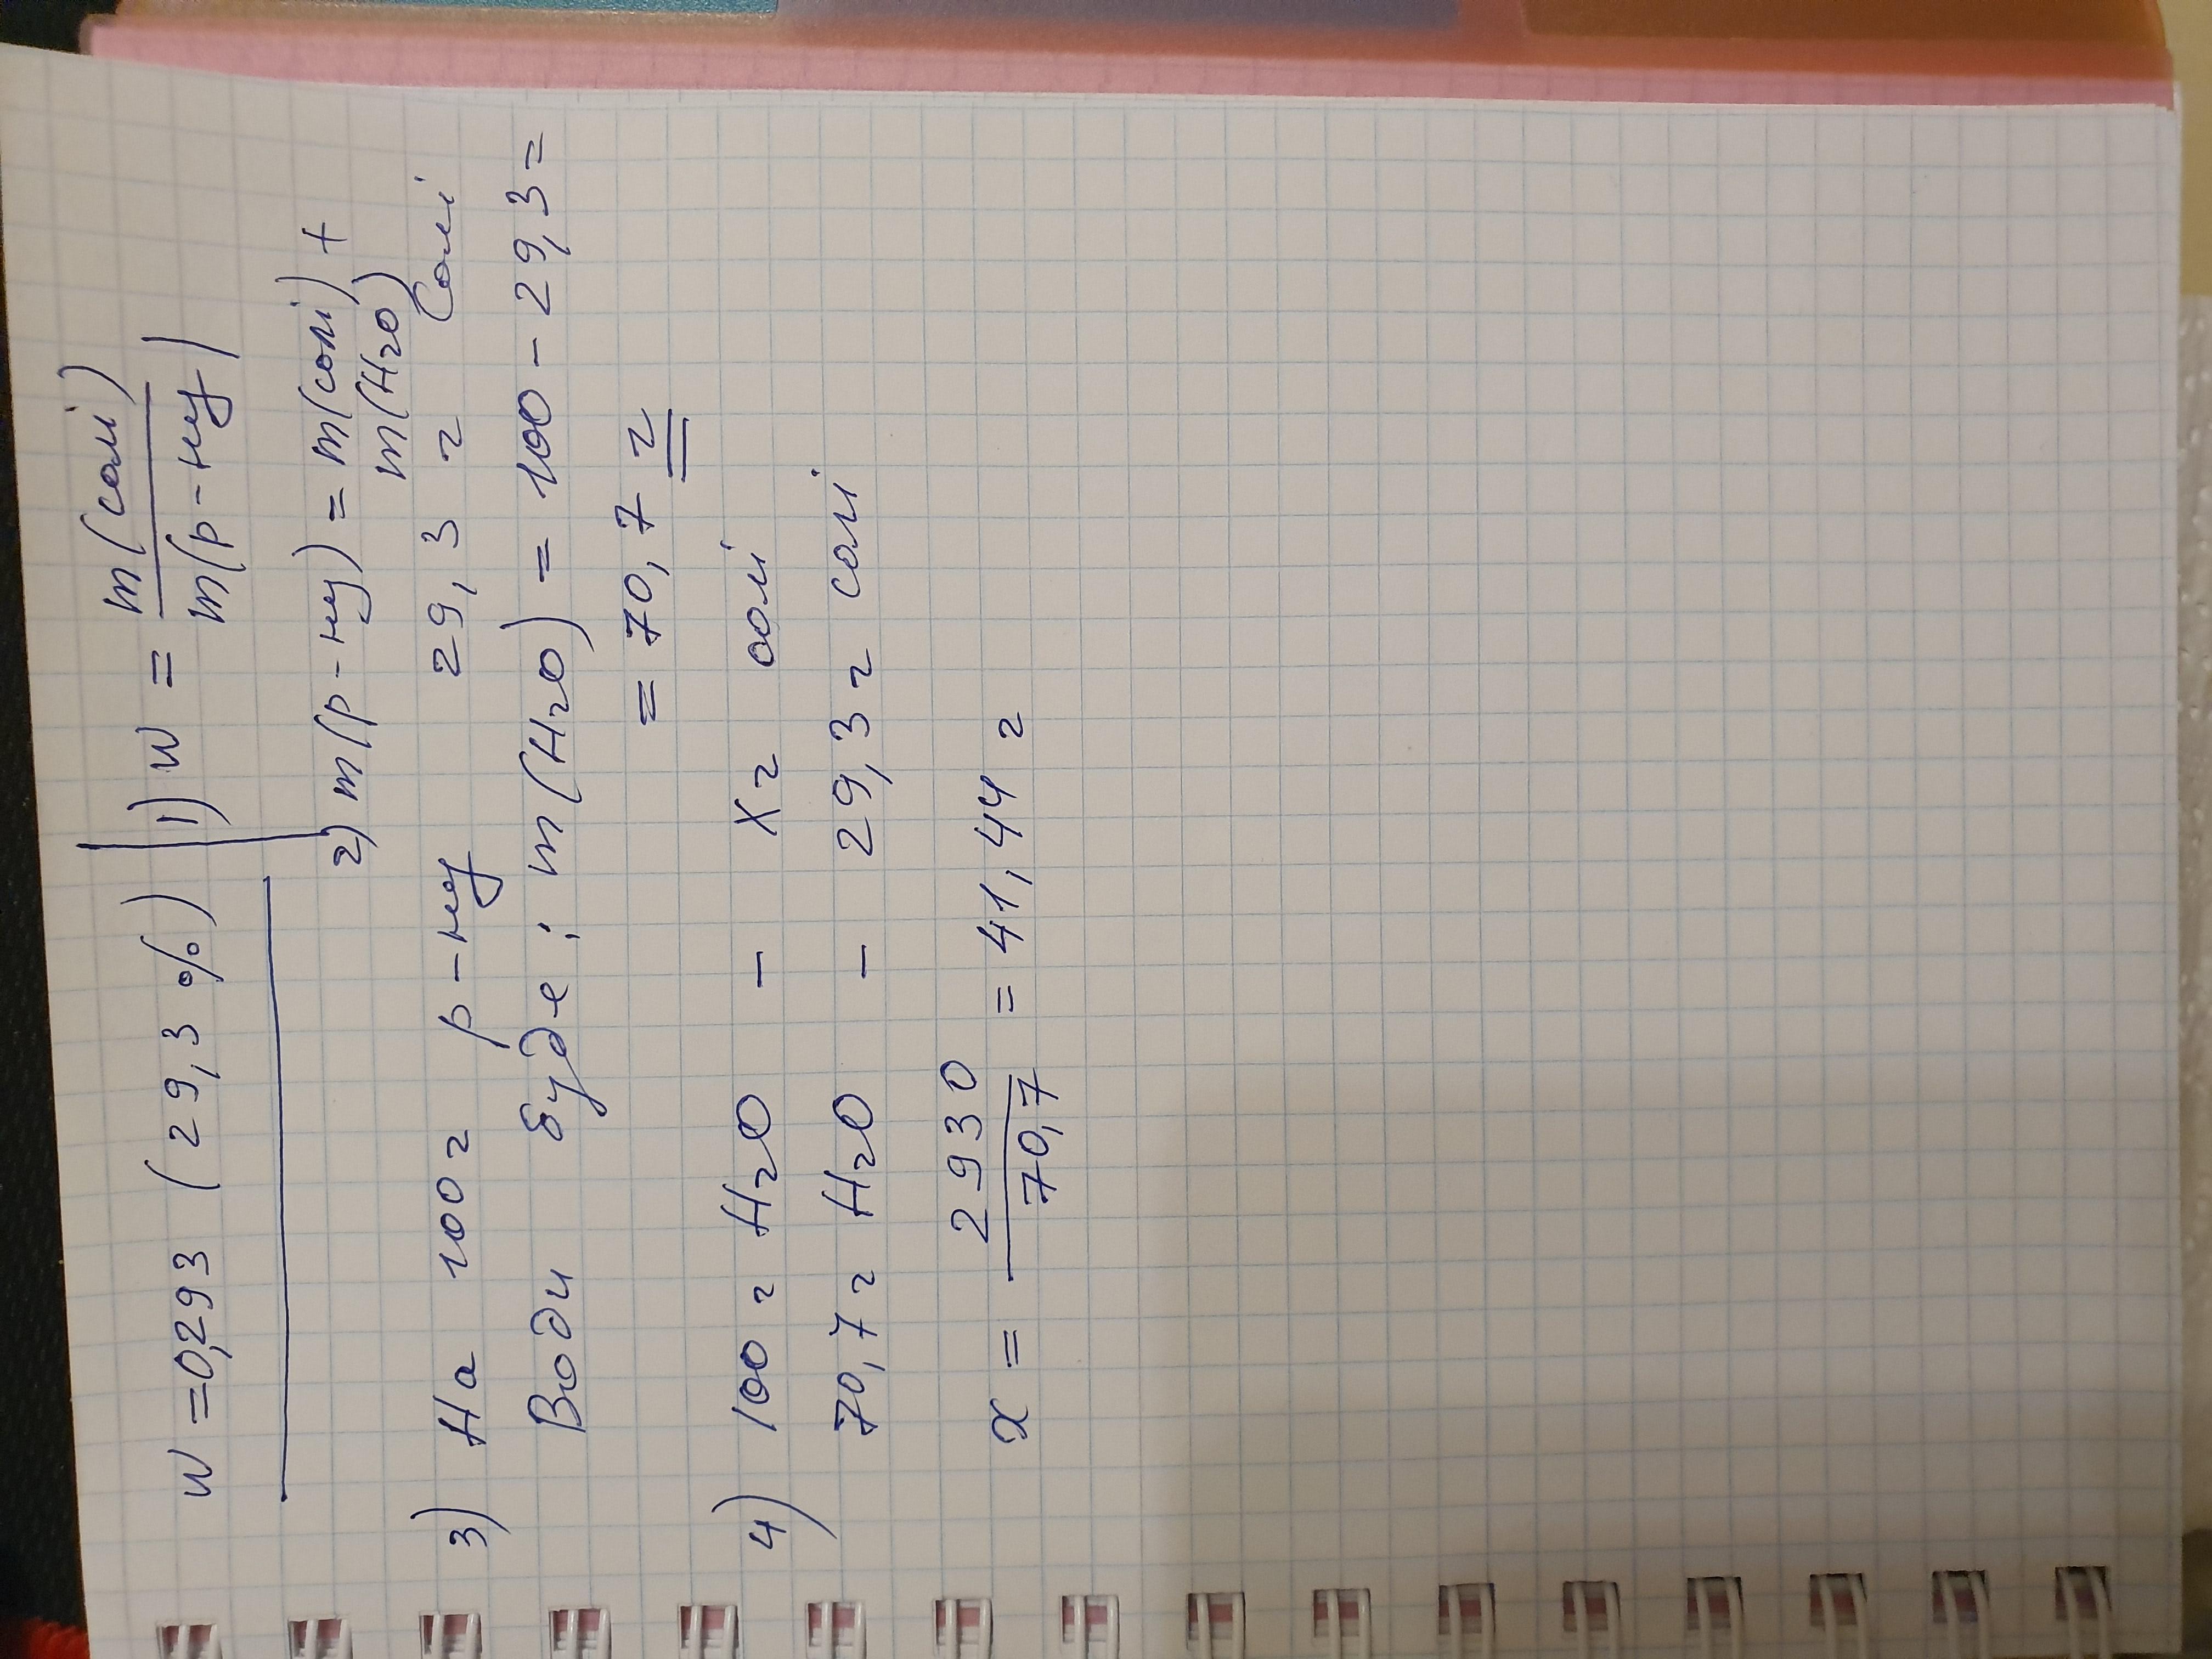 w = 0,293 (29,3 %)
1) w = m(солі)
m(р-ну)
2) m(р-ну) = m(солі) +
m(H2O)
3) На 100 г р-ну 29,3 г солі
Води буде: m(H2O) = 100 - 29,3 =
= 70,7 г
4) 100 г H2O - x г солі
70,7 г H2O - 29,3 г солі
x = 2930 / 70,7 = 41,44 г